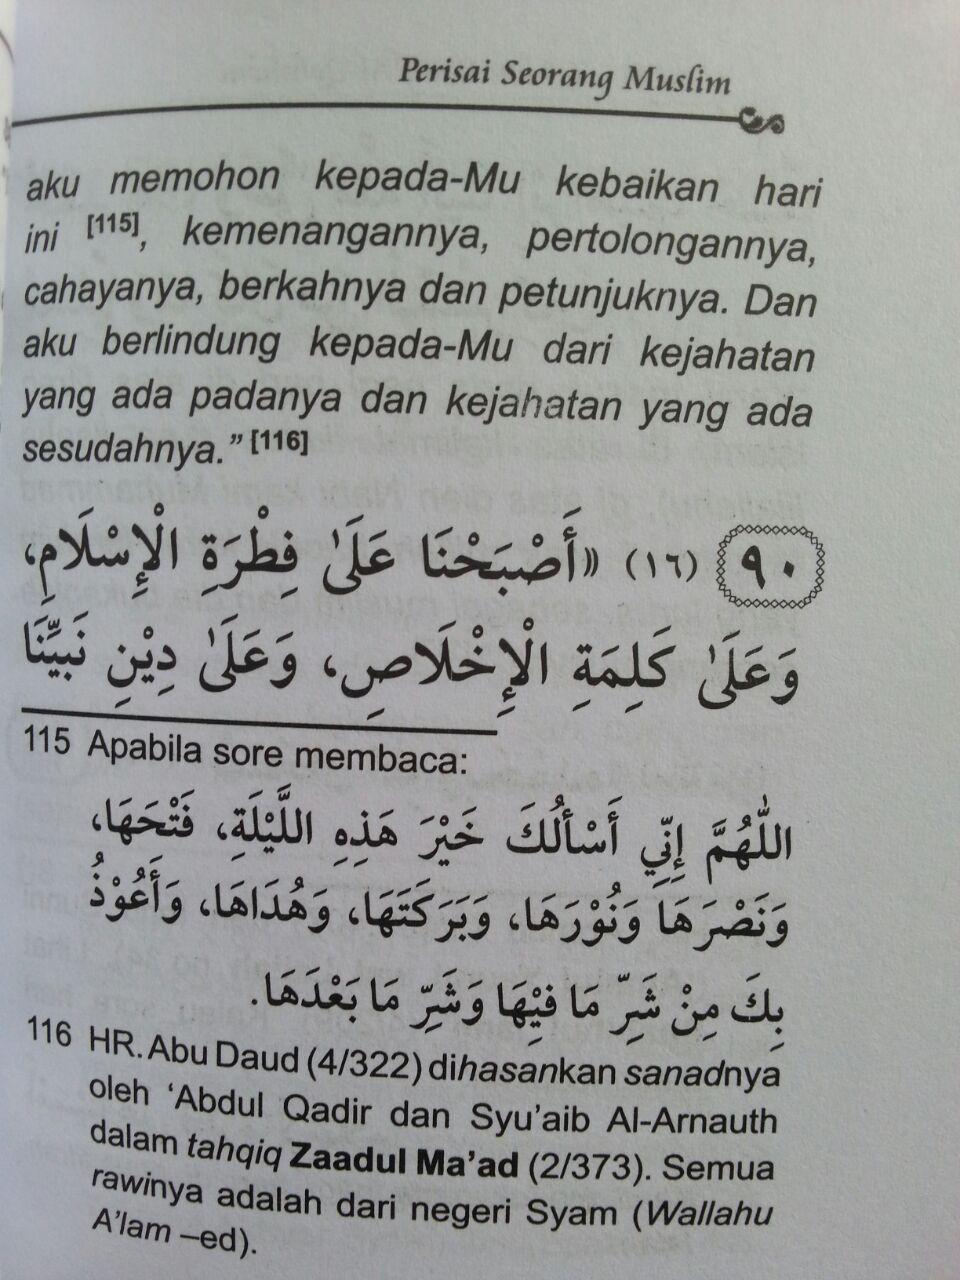 Perisai Seorang Muslim
aku memohon kepada-Mu kebaikan hari
ini [115], kemenangannya, pertolongannya,
cahayanya, berkahnya dan petunjuknya. Dan
aku berlindung kepada-Mu dari kejahatan
yang ada padanya dan kejahatan yang ada
sesudahnya.” [116]
٩٠ (١٦) «أَصْبَحْنَا عَلَىٰ فِطْرَةِ الْإِسْلَامِ،
وَعَلَىٰ كَلِمَةِ الْإِخْلَاصِ، وَعَلَىٰ دِيْنِ نَبِيِّنَا
115 Apabila sore membaca:
اللّٰهُمَّ إِنِّي أَسْأَلُكَ خَيْرَ هَذِهِ اللَّيْلَةِ، فَتْحَهَا،
وَنَصْرَهَا وَنُوْرَهَا، وَبَرَكَتَهَا، وَهُدَاهَا، وَأَعُوْذُ
بِكَ مِنْ شَرِّ مَا فِيْهَا وَشَرِّ مَا بَعْدَهَا.
116 HR. Abu Daud (4/322) dihasankan sanadnya
oleh ‘Abdul Qadir dan Syu’aib Al-Arnauth
dalam tahqiq Zaadul Ma’ad (2/373). Semua
rawinya adalah dari negeri Syam (Wallahu
A’lam –ed).